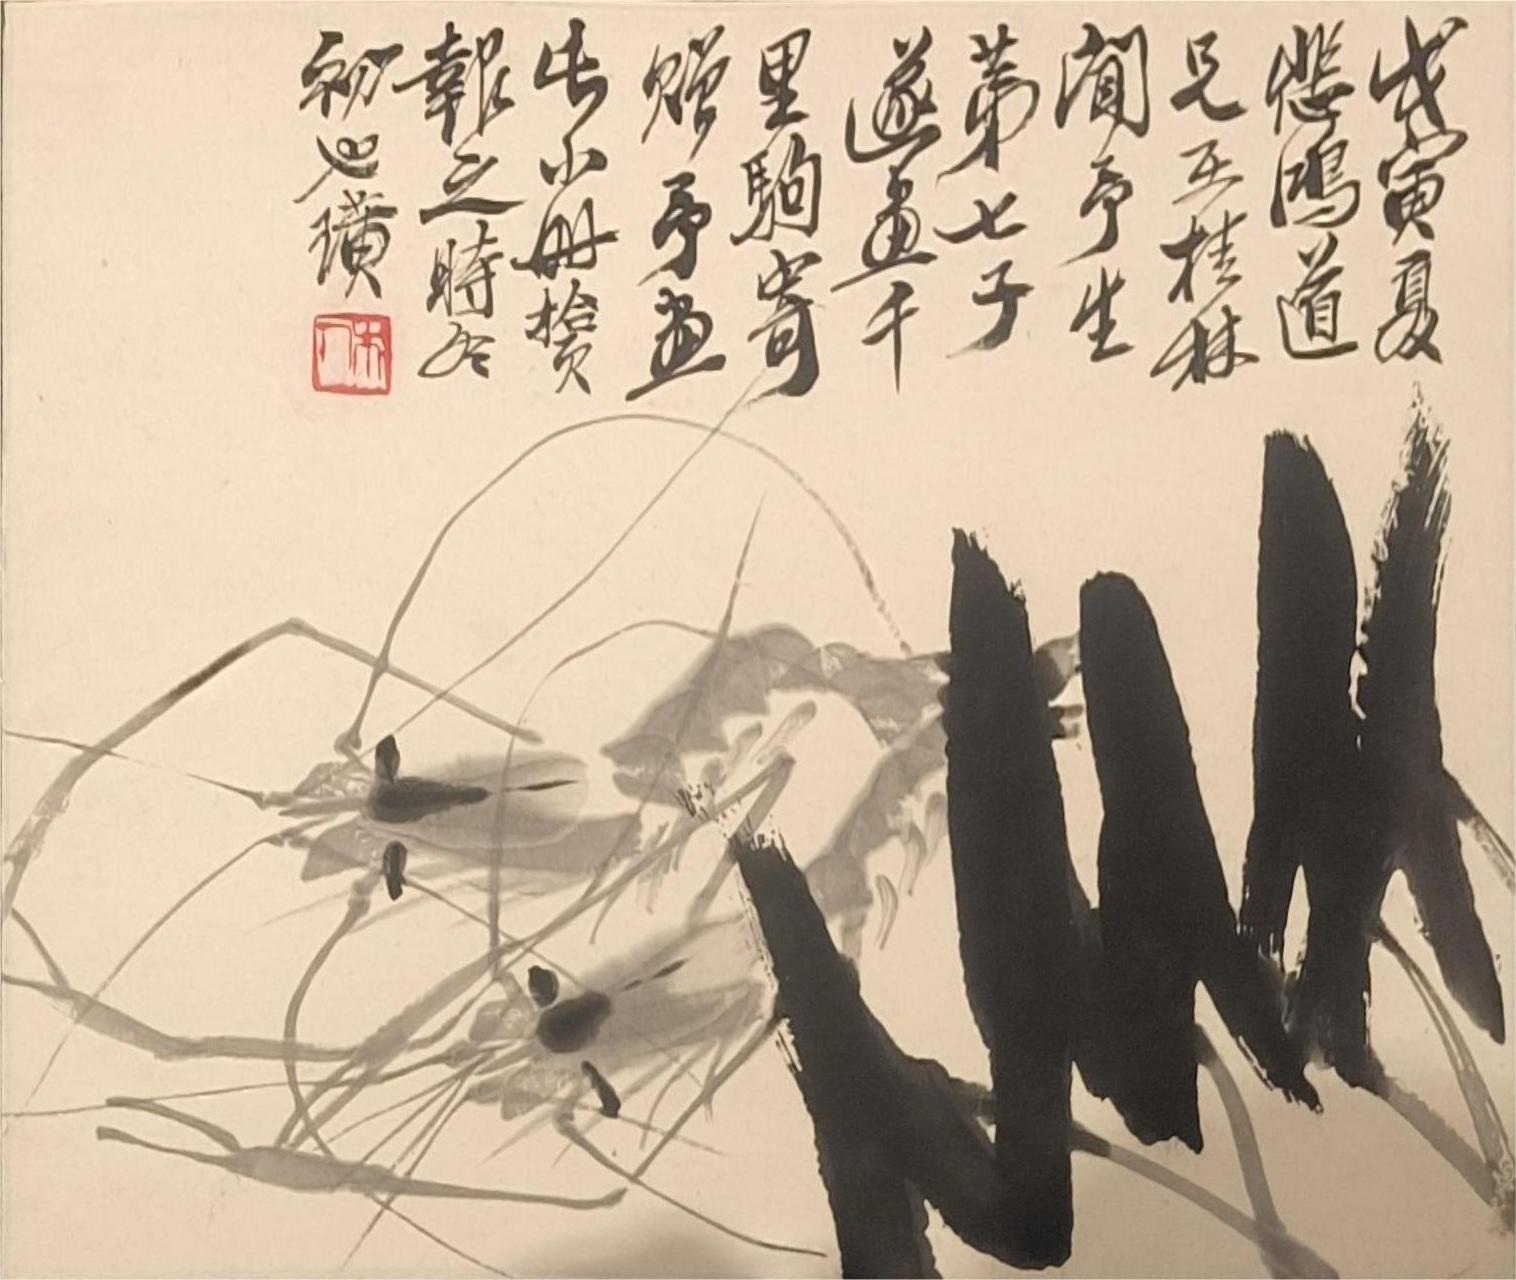 戊寅夏
悲鴻道
兄在桂林
聞予生
第七子
遂畫千
里駒寄
贈予畫
此小冊撿
報之時居
初也璜
木人